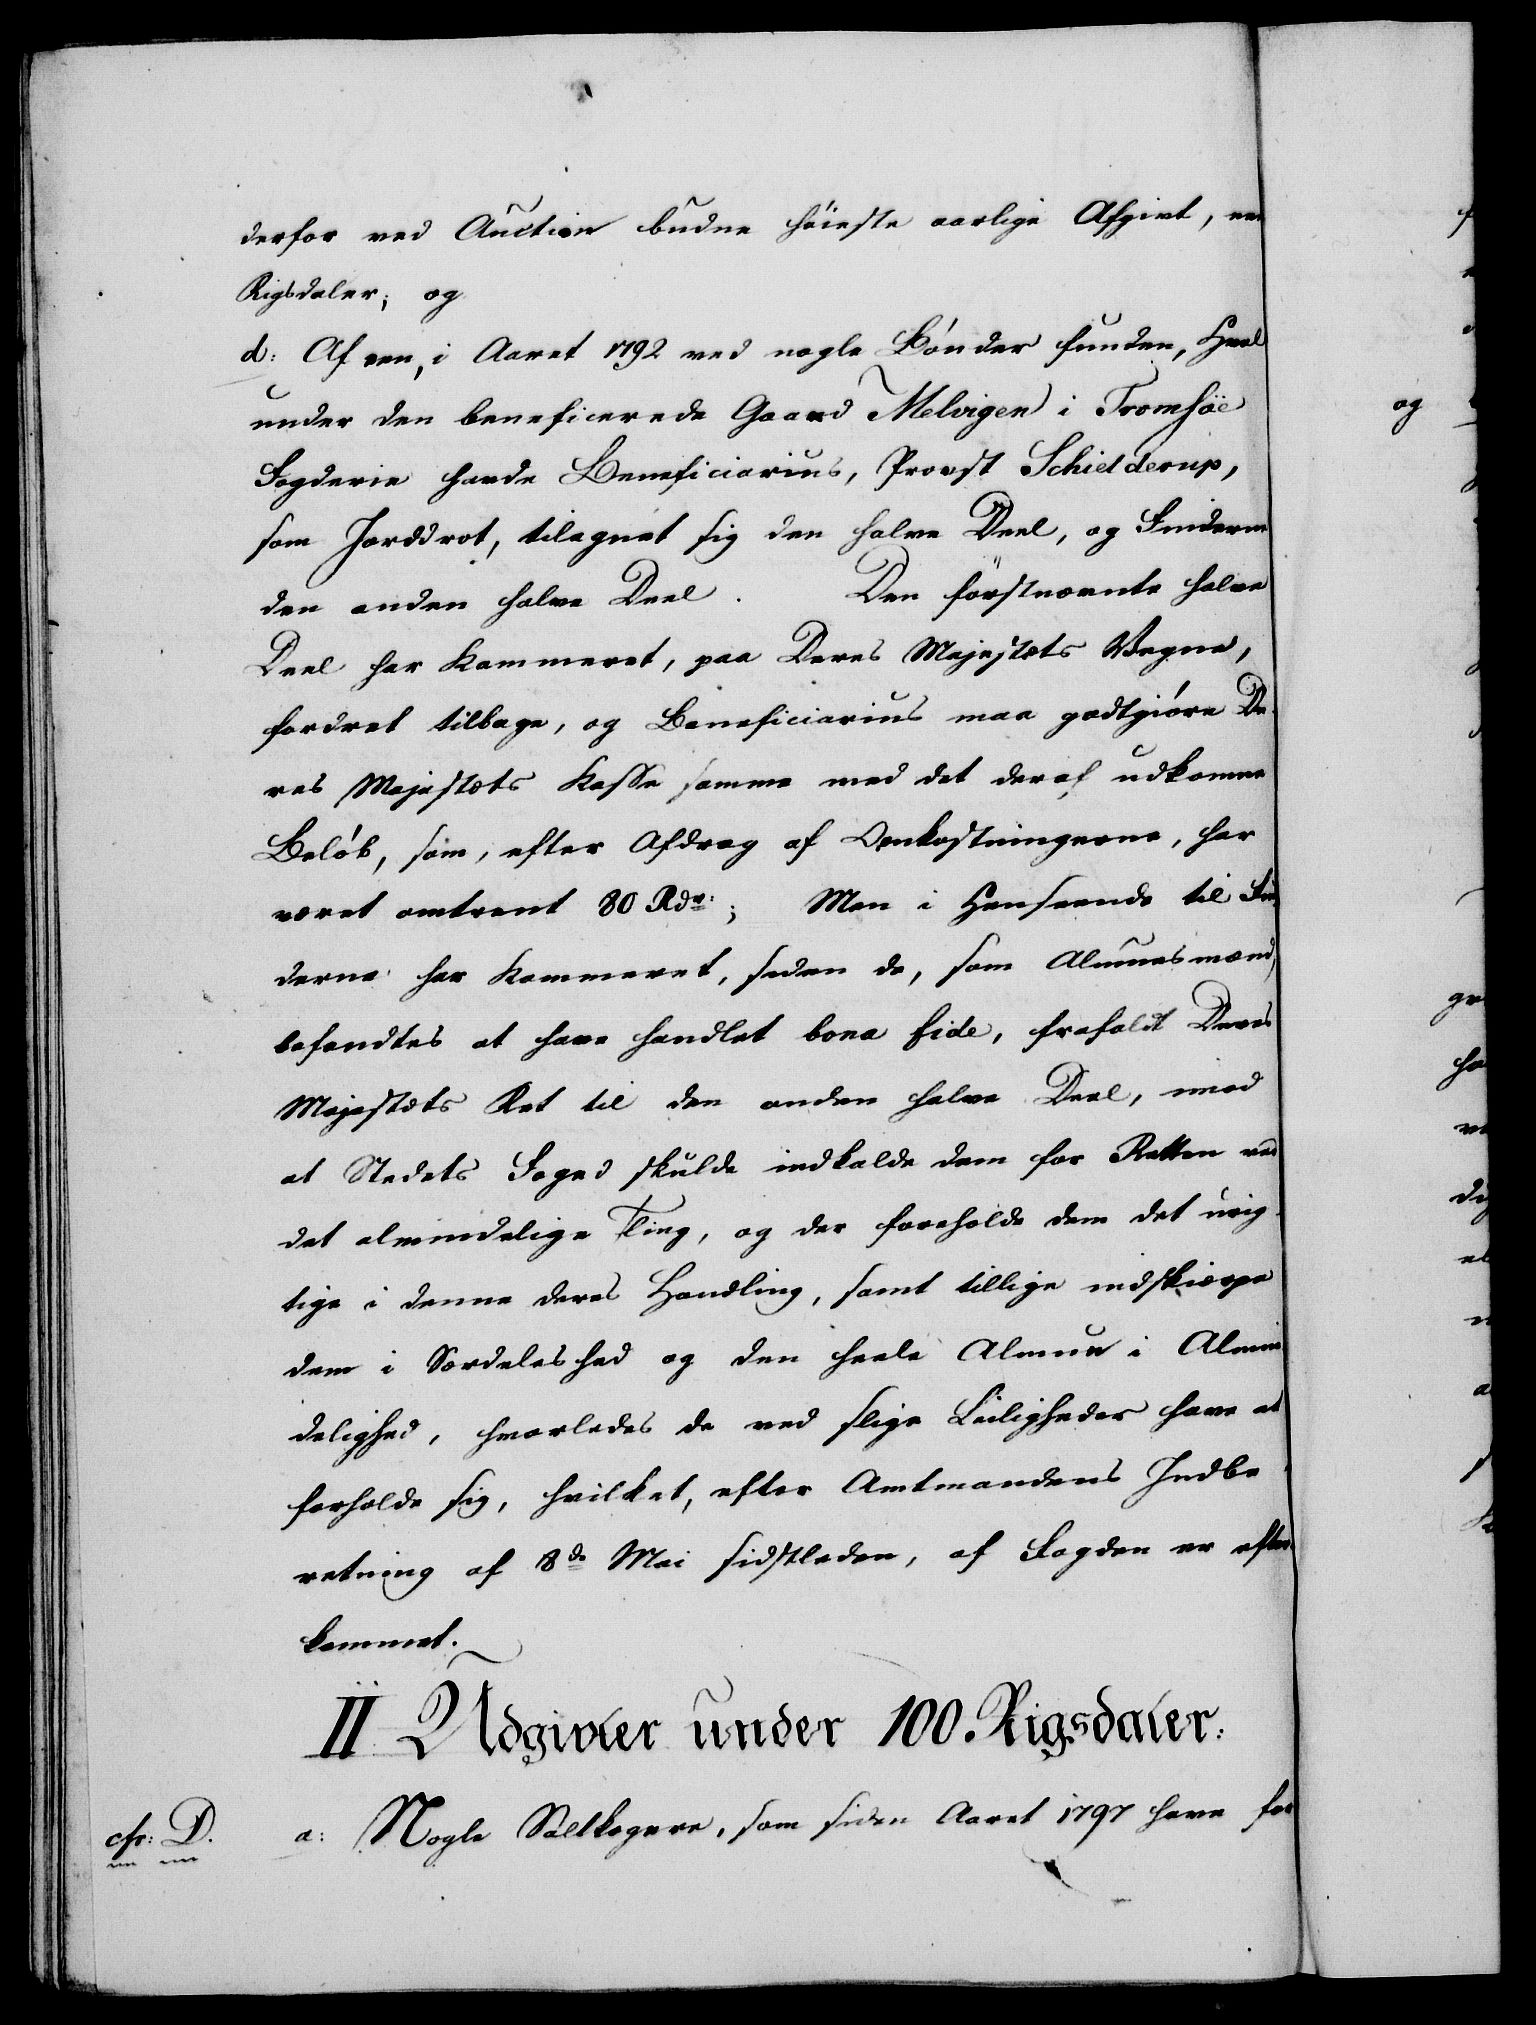 derfor ved Auction budne höieste aarlige Afgivt, een
Rigsdaler; og
d: Af een, i Aaret 1792 ved nogle Bönder funden, Hval
under den beneficerede Gaard Melvigen i Tromsöe
Fogderie havde Beneficiarius, Provst Schielderup,
som Jorddrot, tilegnet sig den halve Deel, og Finderne
den anden halve Deel. Den förstnævnte halve
Deel har Kammeret, paa Deres Majestæts Vegne,
fordret tilbage, og Beneficiarius maa godtgiöre De-
res Majestæts Kasse samme med det deraf udkomne
Belöb, som, efter Afdrag af Omkostningerne, har
været omtrent 80 Rdr.; Men i Henseende til Fin-
derne har Kammeret, siden de, som Almuesmænd,
befandtes at have handlet bona fide, frafaldt Deres
Majestæts Ret til den anden halve Deel, imod
at Stedets Foged skulde indkalde dem for Retten ved
det almindelige Ting, og der foreholde dem det urig-
tige i denne deres Handling, samt tillige indskiærpe
dem i Særdeleshed og den heele Almue i Almin-
delighed, hvorledes de ved slige Leiligheder have at
forholde sig, hvilket, efter Amtmandens Indbe-
retning af 8de Mai sidstleden, af Fogden er efter-
kommet.
II Udgivter under 100. Rigsdaler:
cfr: D.
a: Nogle Saltkogere, som siden Aaret 1797 have for
og